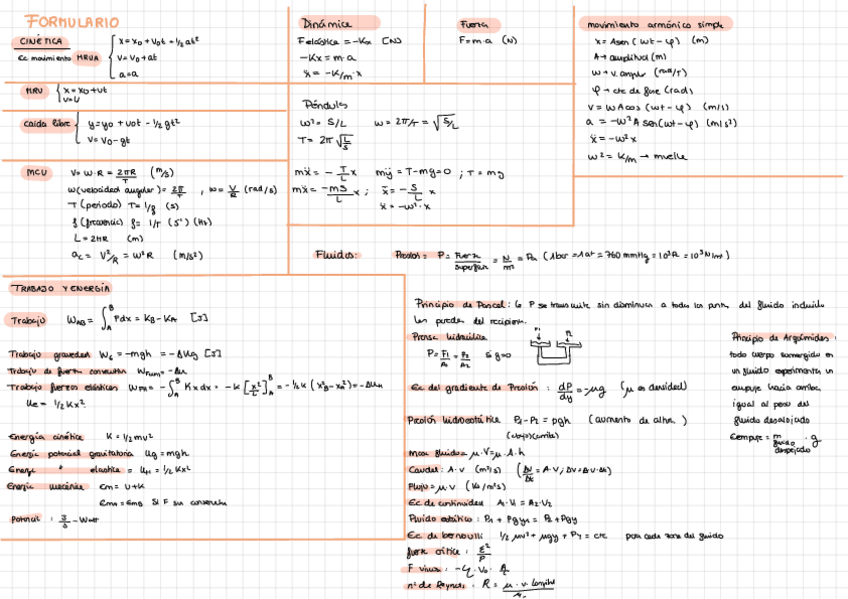 FORMULARIO
CINÉTICA
Ec movimiento MRUA
x = x0 + v0t + 1/2 at²
v = v0 + at
a = a
MRU
x = x0 + vt
v = v
caida libre
y = y0 + v0t - 1/2 gt²
v = v0 - gt
MCU
v = w·R = 2πR/T (m/s)
w (velocidad angular) = 2π/T , w = v/R (rad/s)
T (periodo) T = 1/f (s)
f (frecuencia) f = 1/T (s⁻¹) (Hz)
L = 2πR (m)
ac = v²/R = w²R (m/s²)
Dinámica
F elástica = -Kx [N]
-Kx = m·a
ẍ = -K/m · x
Fuerza
F = m·a (N)
Péndulo
w² = g/L w = 2π/T = √g/L
T = 2π √L/g
mẍ = - T/L x mÿ = T - mg = 0 ; T = mg
mẍ = -mg/L x ; ẍ = - g/L x
ẍ = -w²·x
movimiento armónico simple
x = A sen (wt - φ) (m)
A → amplitud (m)
w → v. angular (rad/s)
φ → cte de fase (rad)
v = wA cos (wt - φ) (m/s)
a = -w² A sen (wt - φ) (m/s²)
ẍ = -w²x
w² = K/m → muelle
Fluidos:
Presión = P = Fuerza/superficie = N/m² = Pa (1bar = 1at = 760 mmHg = 10⁵ Pa = 10⁵ N/m²)
TRABAJO Y ENERGÍA
Trabajo W_AB = ∫ Fdx = K_B - K_A [J]
Trabajo gravedad W_G = -mgh = -ΔUg [J]
Trabajo de fuerza conservativa = -Δu
Trabajo fuerza elástica = -∫ Kx dx = -K [x²/2] = -1/2 K (x²_B - x²_A) = -ΔU
Ue = 1/2 Kx²
Energía cinética K = 1/2 mv²
Energía potencial gravitatoria Ug = mgh
Energía " elástica = 1/2 Kx²
Energía mecánica Em = U + K
Em_A = Em_B si F son conservativas
Potencia : J/s - Watt
Principio de Pascal: la P se transmite sin disminuir a todos los puntos del fluido incluido
las paredes del recipiente.
Prensa hidráulica
F1 F2
P = F1/A1 = F2/A2 si y = 0
Ec del gradiente de Presión : dP/dy = -μg (μ es densidad)
Presión hidrostática P1 - P2 = ρgh (aumento de altura)
(abajo) (arriba)
masa fluido = μ·V = μ·A·h
Caudal : A·v (m³/s) (ΔV/Δt = A·v ; ΔV = A·v·Δt)
Flujo = μ·v (kg/m²s)
Ec de continuidad A1·V1 = A2·V2
Fluido estático : P1 + ρgy1 = P2 + ρgy
Ec de bernoulli 1/2 μv² + μgy + P = cte para cada zona del fluido
F viscosa :
nº de Reynolds : R = μ·v·longitud
Principio de Arquímedes :
todo cuerpo sumergido en
un fluido experimenta un
empuje hacia arriba
igual al peso del
fluido desalojado
Eempuje = m fluido desalojado · g